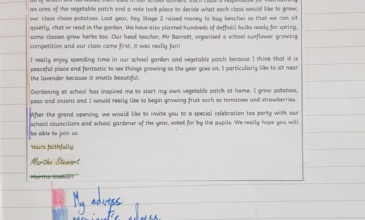 an area of the vegetable patch and a vote took place to decide what each class would like to grow;
our class chose potatoes. Last year, Key Stage 2 raised money to buy benches so that we can sit
quietly, chat or read in the garden. We have also planted hundreds of daffodil bulbs ready for spring,
some classes grew herbs too. Our head teacher, Mr Barnett, organised a school sunflower growing
competition and our class came first, it was really fun!
I really enjoy spending time in our school garden and vegetable patch because I think that it is
peaceful place and fantastic to see things growing as the year goes on. I particularly like to sit near
the lavender because it smells beautiful.
Gardening at school has inspired me to start my own vegetable patch at home. I grow potatoes,
peas and onions and I would really like to begin growing fruit such as tomatoes and strawberries.
After the grand opening, we would like to invite you to a special celebration tea party with our
school councillors and school gardener of the year, voted for by the pupils. We really hope you will
be able to join us.
Yours faithfully,
Martha Stewart
Martha Stewart
My adress
adress